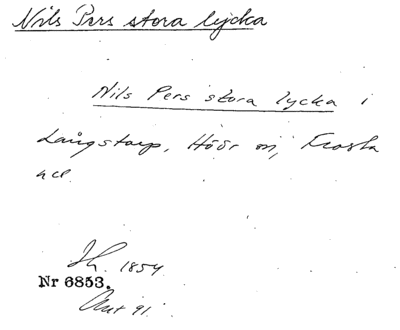 Nils Pers stora lycka
Nils Pers stora lycka i
Långstorp, Höör sn, Frosta
hd.
Sk. 1854
Nr 6853.
Akt 91